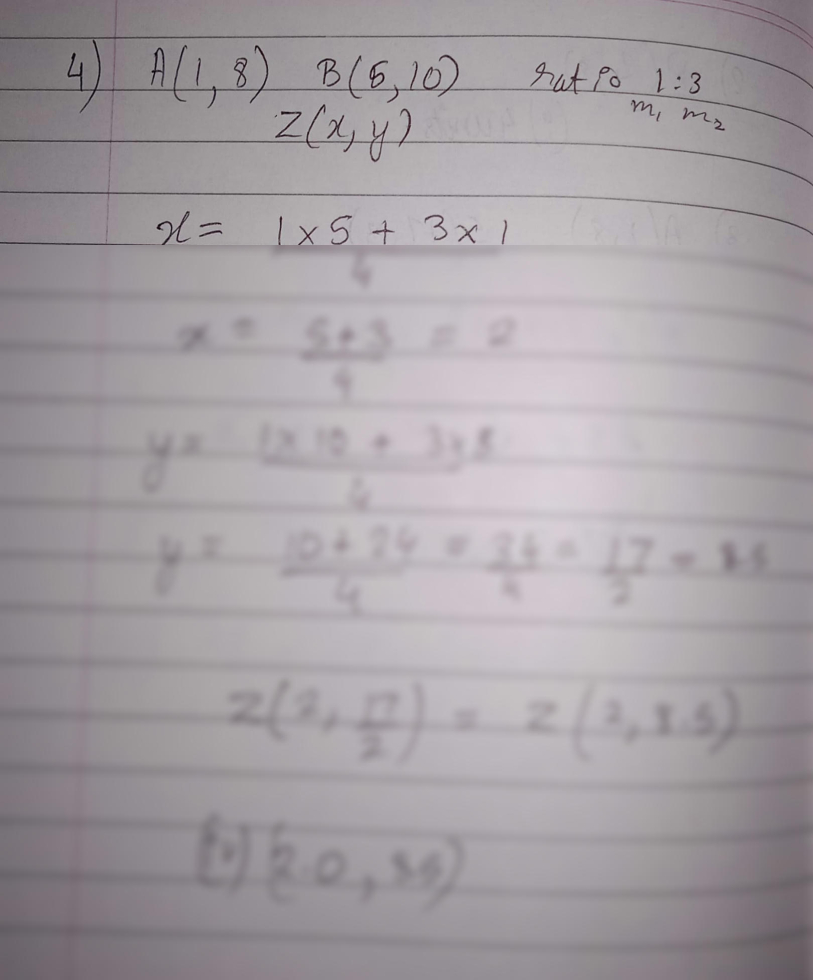 4) A(1, 8) B(5, 10) ratio 1:3
m₁ m₂
Z(x, y)
x = 1 x 5 + 3 x 1
4
x = 5+3 = 2
4
y = 1 x 10 + 3 x 8
4
y = 10 + 24 = 34 = 17 = 8.5
4 4 2
Z(2, 17/2) = Z(2, 8.5)
(2.0, 8.5)